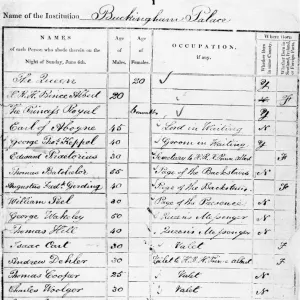 1
Name of the Institution, Buckingham Palace
NAMES of each Person who abode therein on the Night of Sunday, June 6th. Age of Males. Age of Females. OCCUPATION. If any. Where Born
The Queen 20 Y
H.R.H. Prince Albert 20 F
The Princess Royal Y
Earl of Aboyne 45 Lord in Waiting N
George Keppel 40 Groom in Waiting Y
Edward 30 Secretary to H.R.H. Prince Albert F
Thomas Batchelor 55 Page of the Backstairs N
Augustus Fredk. Gerding 40 Page of the Backstairs F
William Peel 40 Page of the Presence N
George Wakeley 50 Queen's Messenger N
Thomas Hill 40 Queen's Messenger N
Isaac Cart 30 Valet F
Andrew Dehler 30 Valet to H.R.H. Prince Albert F
Thomas Cooper 25 Valet N
Charles Woolger 30 Valet N